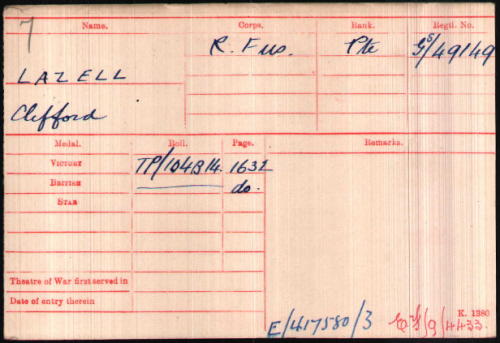 7
Name. Corps. Rank. Regtl. No.
R. Fus. Pte GS/49149
LAZELL
Clifford
Medal. Roll. Page. Remarks.
VICTORY TP/104B14. 1632
BRITISH do.
STAR
Theatre of War first served in
Date of entry therein
K. 1380
E/417580/3 /9/4433